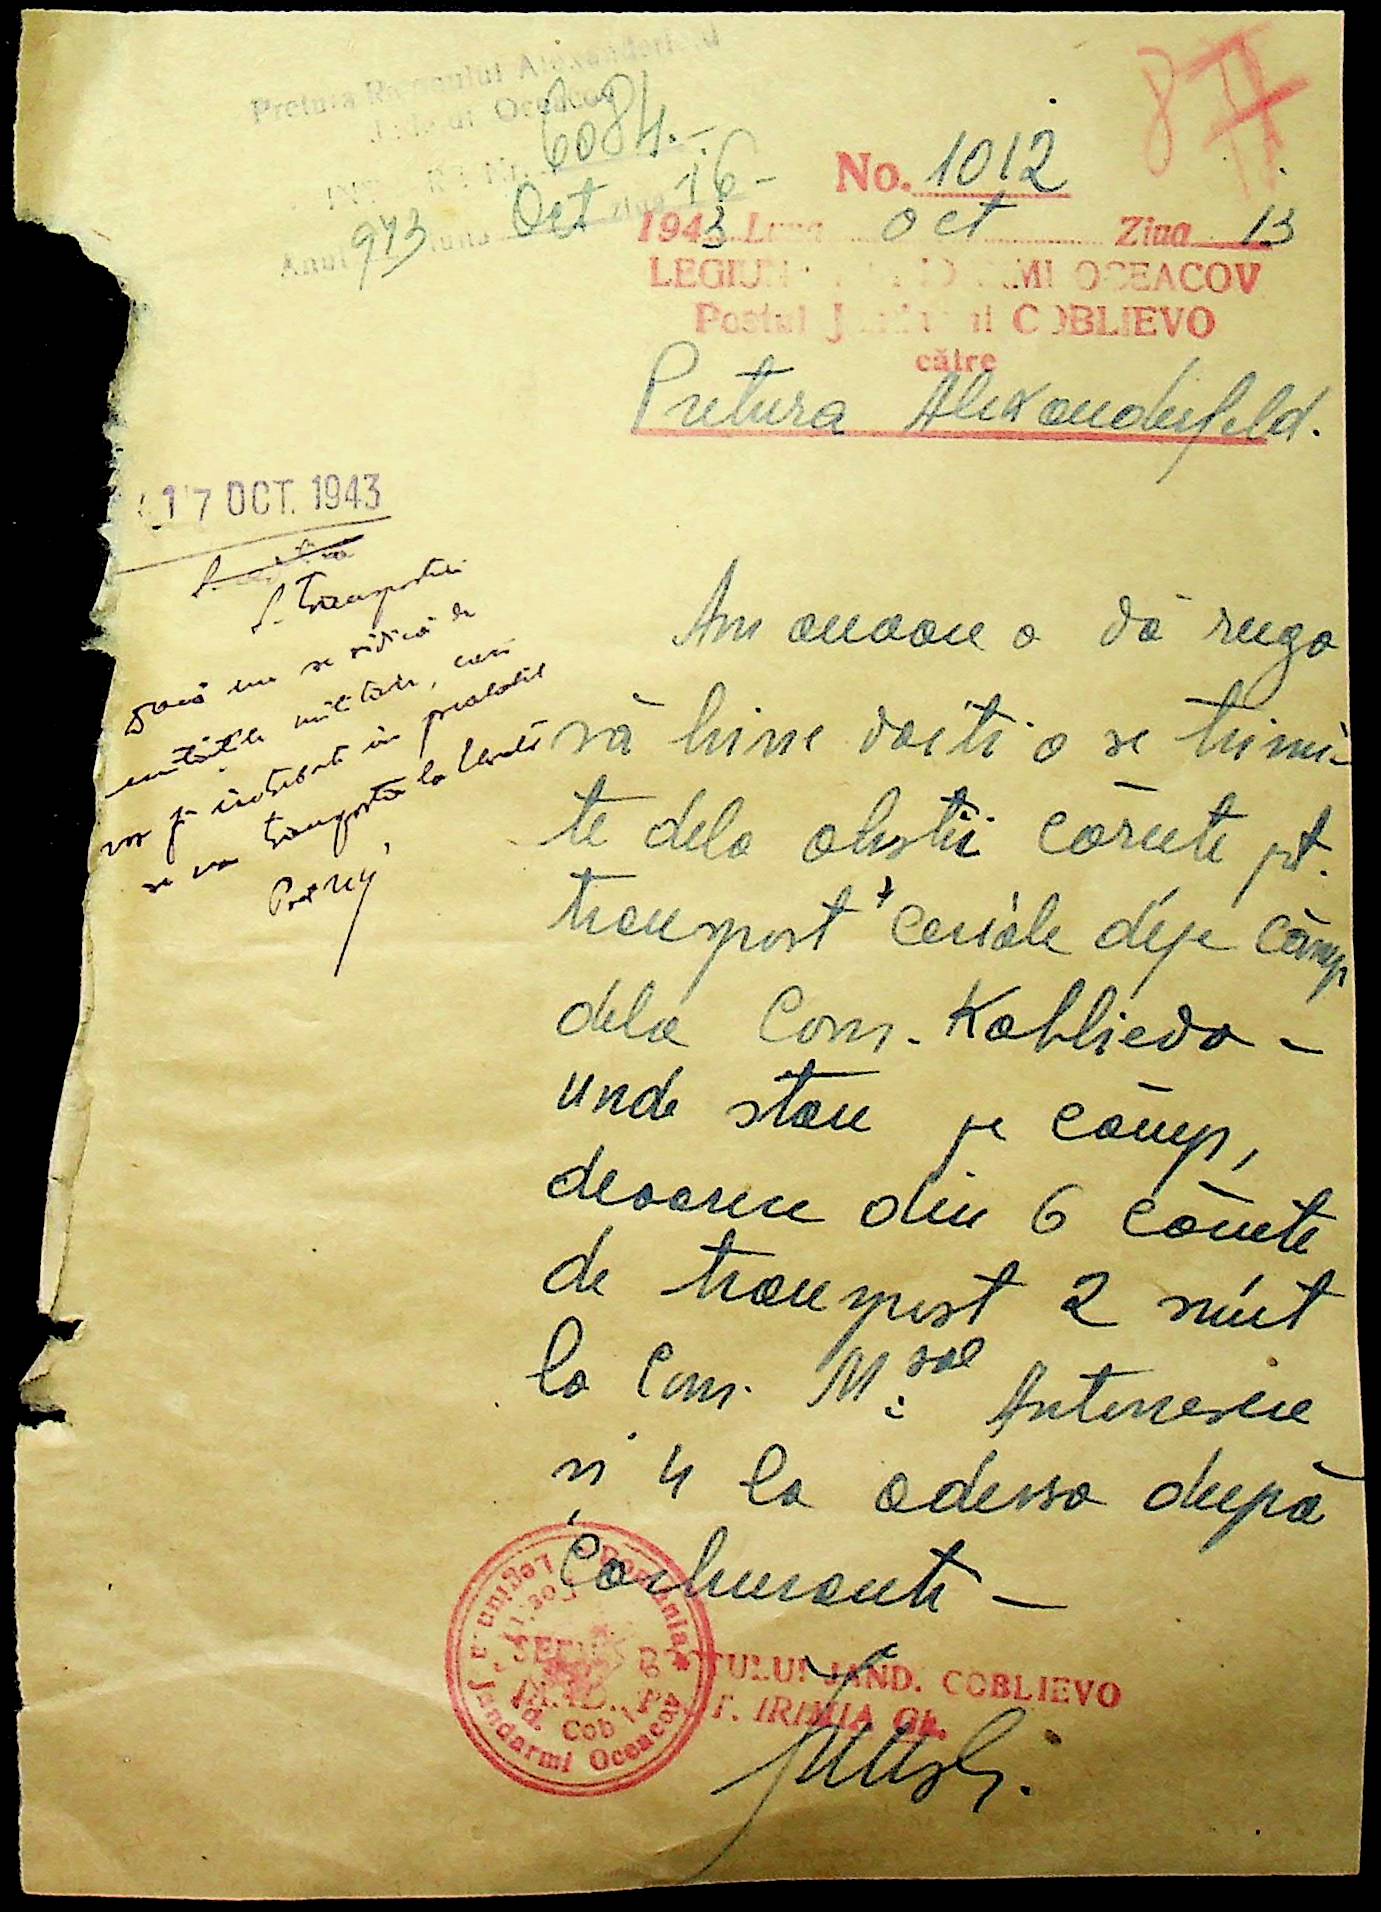 Pretura Raionului Alexanderfeld
Județul Oceacov
Nr. 6084.-
Anul 943 luna Oct ziua 16-
87
No. 1012
1943 Luna oct Ziua 13
LEGIUNEA JANDARMI OCEACOV
Postul Jandarmi COBLIEVO
către
Pretura Alexanderfeld.
17 OCT. 1943
S. Transportui
Dacă nu se ridică de
unitățile militare, cari
vor fi întrebate în prealabil
se va transporta la
Am onoare a vă ruga
să bine voiți a se trimi-
te dela obștii cărute pt.
transport cereale depe câmp
dela Com. Koblievo -
unde stau pe câmp,
deoarece din 6 căruțe
de transport 2 sunt
la Com. M.sal Antonescu
și 4 la Odessa după
Carburanti -
ȘEFUL POSTULUI JAND. COBLIEVO
IRIMIA Gh.
România * Legiunea Jandarmi Oceacov